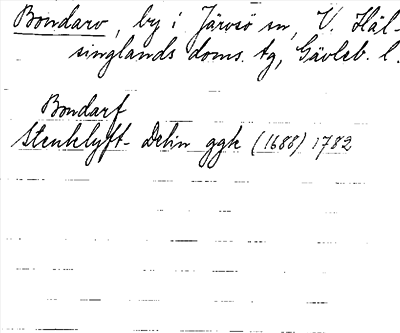 Bondarv, by i Järvsö sn, V. Häl-
singlands doms. tg, Gävleb. l.
Bondarf
Stenklyft- Delin ggk (1688) 1782